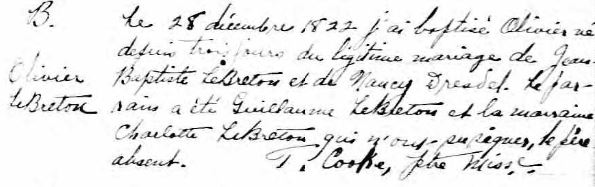 B.
Le 28 décembre 1822 j'ai baptisé Olivier né
depuis trois jours du légitime mariage de Jean-
Olivier
LeBreton
Baptiste LeBreton et de Nancy Dresdel. Le par-
rain a été Guillaume LeBreton et la marraine
Charlotte LeBreton qui n'ont su signer, le père
absent. T. Cooke, ptre Miss.